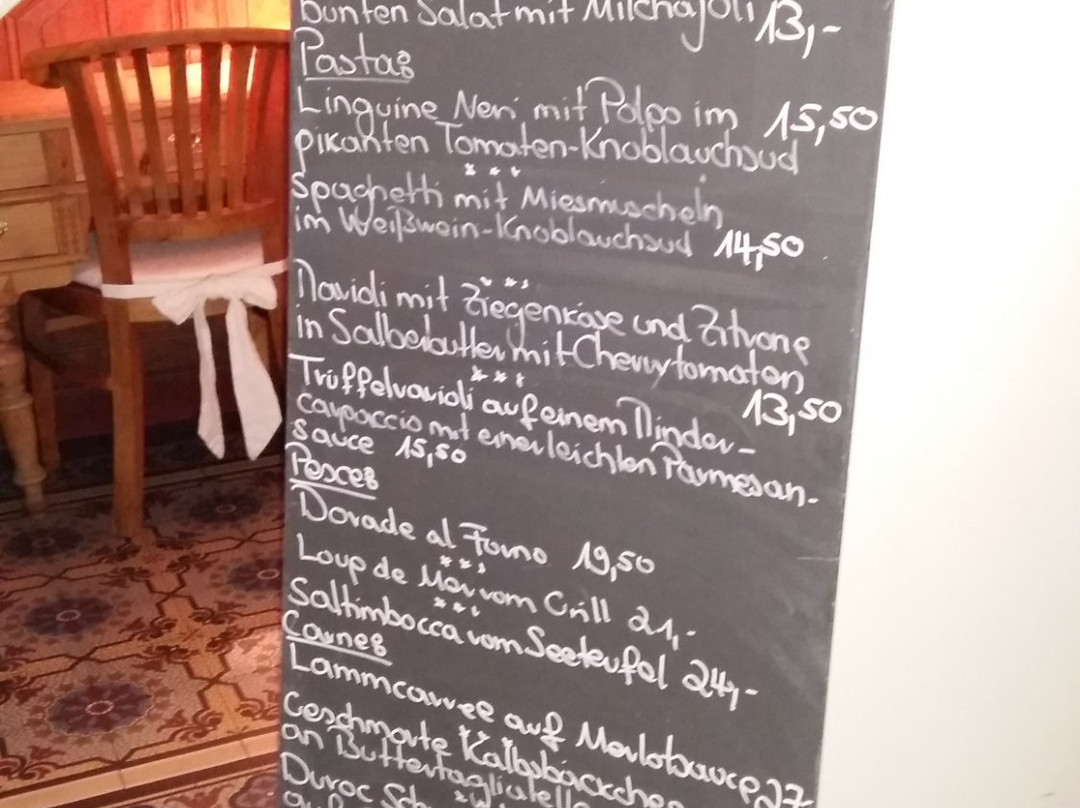 bunten Salat mit Milchajoli 13,-
Pastas
Linguine Neri mit Polpo im 15,50
pikanten Tomaten-Knoblauchsud
***
Spaghetti mit Miesmuscheln
im Weißwein-Knoblauchsud 14,50
***
Ravioli mit Ziegenkäse und Zitrone
in Salbeibutter mit Cherrytomaten
*** 13,50
Trüffelravioli auf einem Rinder-
carpaccio mit einer leichten Parmesan-
sauce 15,50
Pesces
Dorade al Forno 19,50
***
Loup de Mer vom Grill 21,-
***
Saltimbocca vom Seeteufel 24,-
Carnes
Lammcarree auf Merlotsauce 27
***
Geschmorte Kalbsbäckchen
an Buttertagliatelle
Duroc